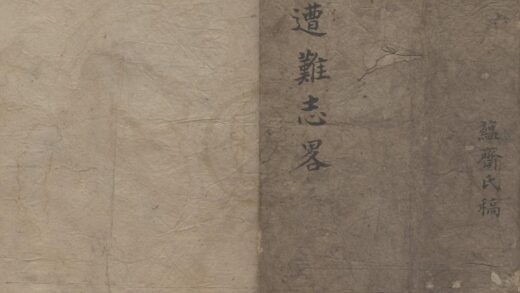 蘇齋氏稿
遭難志畧